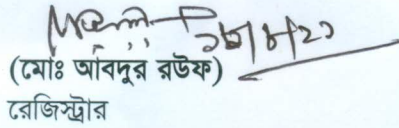 (মোঃ আবদুর রউফ)
রেজিস্ট্রার